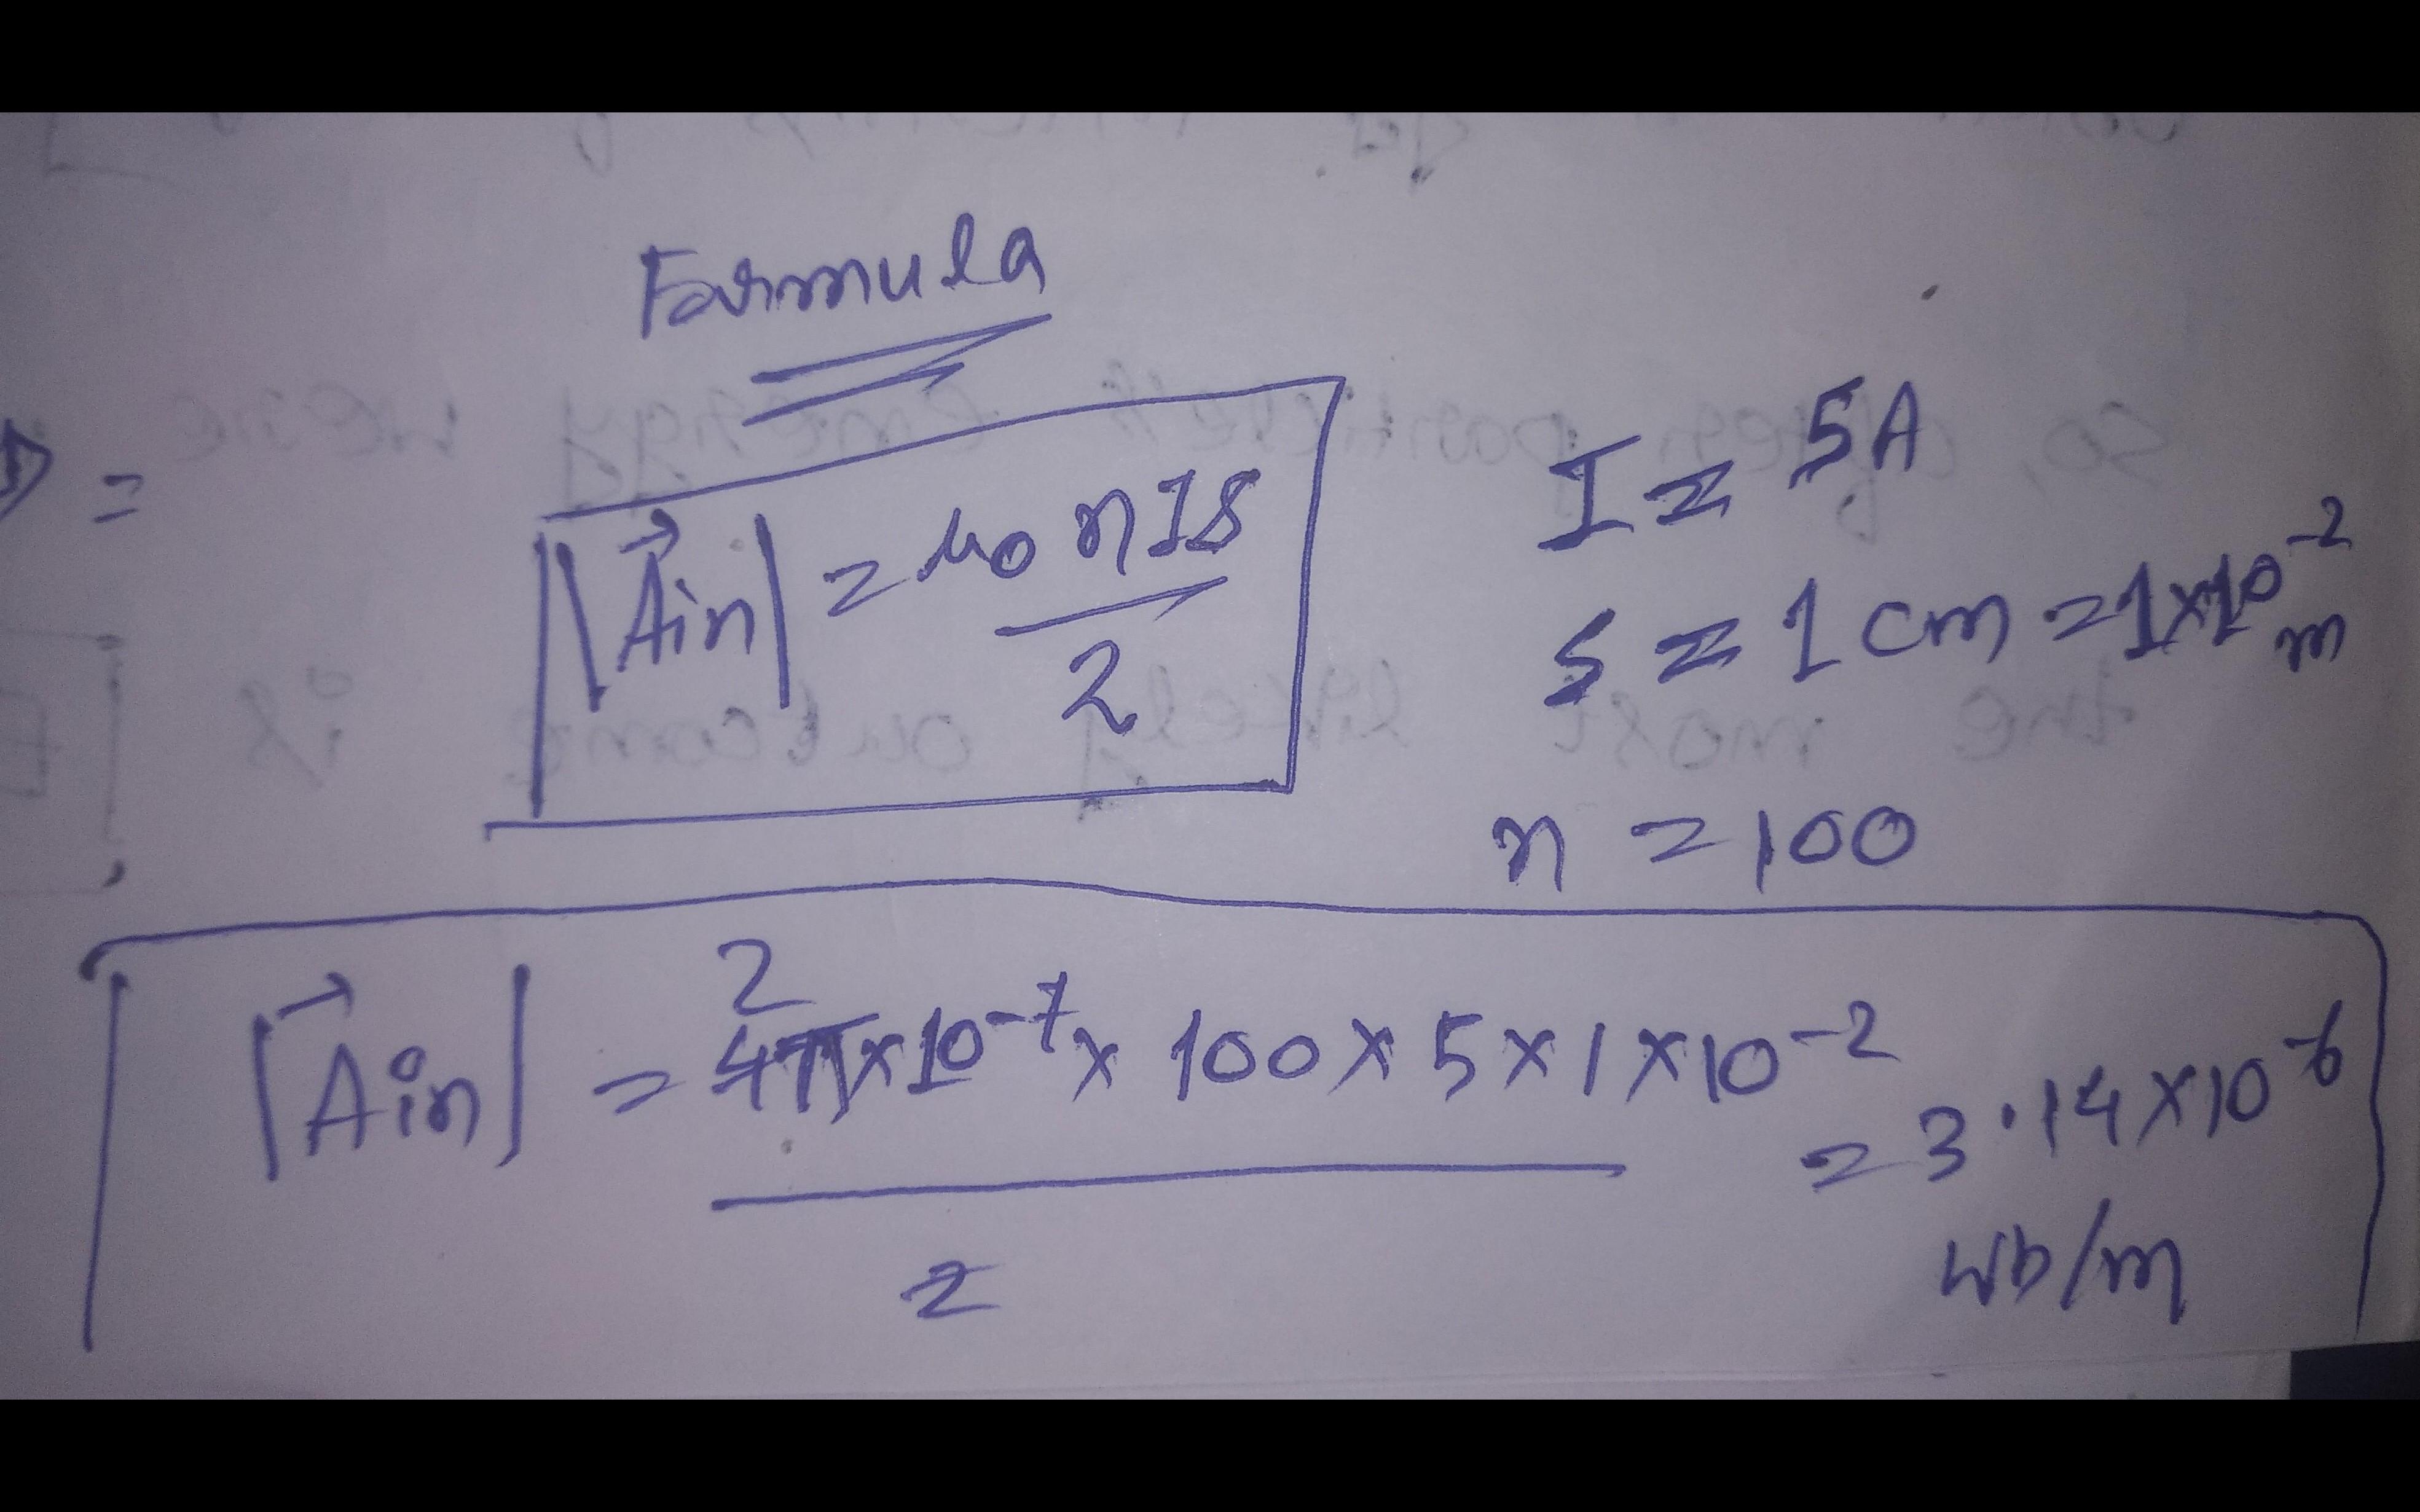 Formula
⇒ =
|A⃗in| = μ₀nIs/2
I = 5A
s = 1 cm = 1×10⁻² m
n = 100
|A⃗in| = 4π×10⁻⁷ × 100 × 5 × 1 × 10⁻² / 2 = 3.14×10⁻⁶ Wb/m
2